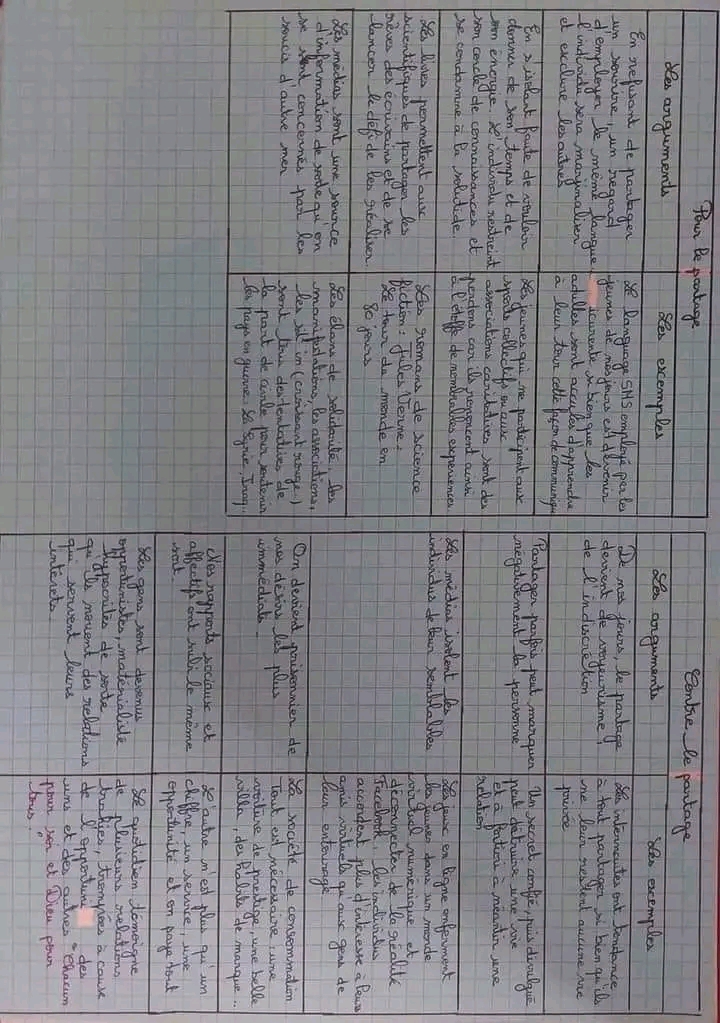 Pour le partage
Les arguments
Les exemples
En refusant de partager
un sourire, un regard
d'employer le même langue,
l'individu sera marginaliser
et exclure les autres
Le language SMS employé par les
jeunes de nos jours est devenir
si bien que les
adultes sont acculés d'apprendre
à leur tour cette façon de communiquer
En s'isolant faute de vouloir
donner de son temps et de
son énergie l'individu restreint
son cercle de connaissances et
se condamne à la solitude.
Les jeunes qui ne participent aux
sports collectifs ou aux
associations caritatives sont des
perdons car ils renoncent ainsi
à l'étoffe de nombrables experiences
Les livres permettent aux
scientifiques de partager les
rêves des écrivains et de se
lancer le défi de les réaliser.
Les romans de science
fiction : Jules Verne :
Le tour du monde en
80 jours
Les médias sont une source
d'information de sorte qu'on
se sent concernés par les
soucis d'autre mer
Les élans de solidarité, les
manifestations, les associations,
les sit in (croissant rouge)
sont tous des tentatives de
la part de civile pour soutenir
les pays en guerre : la Syrie, Iraq..
Contre le partage
Les arguments
Les exemples
De nos jours, le partage
devient de voyeurisme !
de l'indiscrétion
Les internautes ont tendance
à tout partager si bien qu'ils
ne leur restent aucune vie
privée
Partager parfois peut marquer
négativement la personne
Un secret confié, puis divulgué
peut détruire une vie
et à fortiori à néantir une
relation
Les médias isolent les
individus de leur semblables
Les jeux en ligne enferment
les jeunes dans un monde
virtuel numérique et
déconnecter de la réalité
Facebook : les individus
accordent plus d'intéresse à leurs
amis virtuels qu'aux gens de
leur entourage
On devient prisonnier de
nos désirs les plus
immédiats.
La société de consommation
Tout est nécessaire : une
voiture de prestige, une belle
villa, des habits de marque..
Nos rapports sociaux et
affectifs ont subi le même
sort.
L'autre n'est plus qu'un
chiffre, un service, une
opportunité et on paye tout
Les gens sont devenus
opportunistes, matérialisté
hypocrites de sorte
qu'ils nouent des relations
qui servent leurs
intérêts.
Le quotidien témoigne
de plusieurs relations
trahies, trompées à cause
de l'opportuni des
uns et des autres "Chacun
pour soi et Dieu pour
tous"